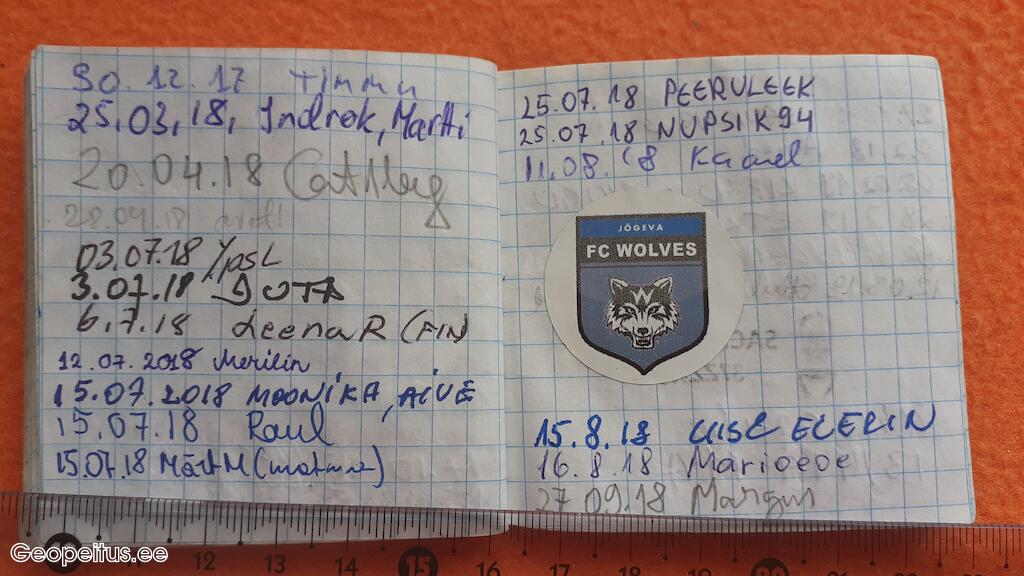 30.12.17 Timmu
25.03.18, Indrek, Martti
20.04.18
28.04.18
03.07.18 YpsL
3.07.18 DUTA
6.7.18 LeenaR (FIN)
12.07.2018 Merilin
15.07.2018 MOONIKA, AIVE
15.07.18 Raul
15.07.18 MärtM
25.07.18 PEERULEEK
25.07.18 NUPSIK94
11.08.18
JÕGEVA
FC WOLVES
15.8.18 LIISI ECERIN
16.8.18 Marioepe
27.09.18 Margus
12 13 14 15 16 17 18 19 20
Geopeitus.ee